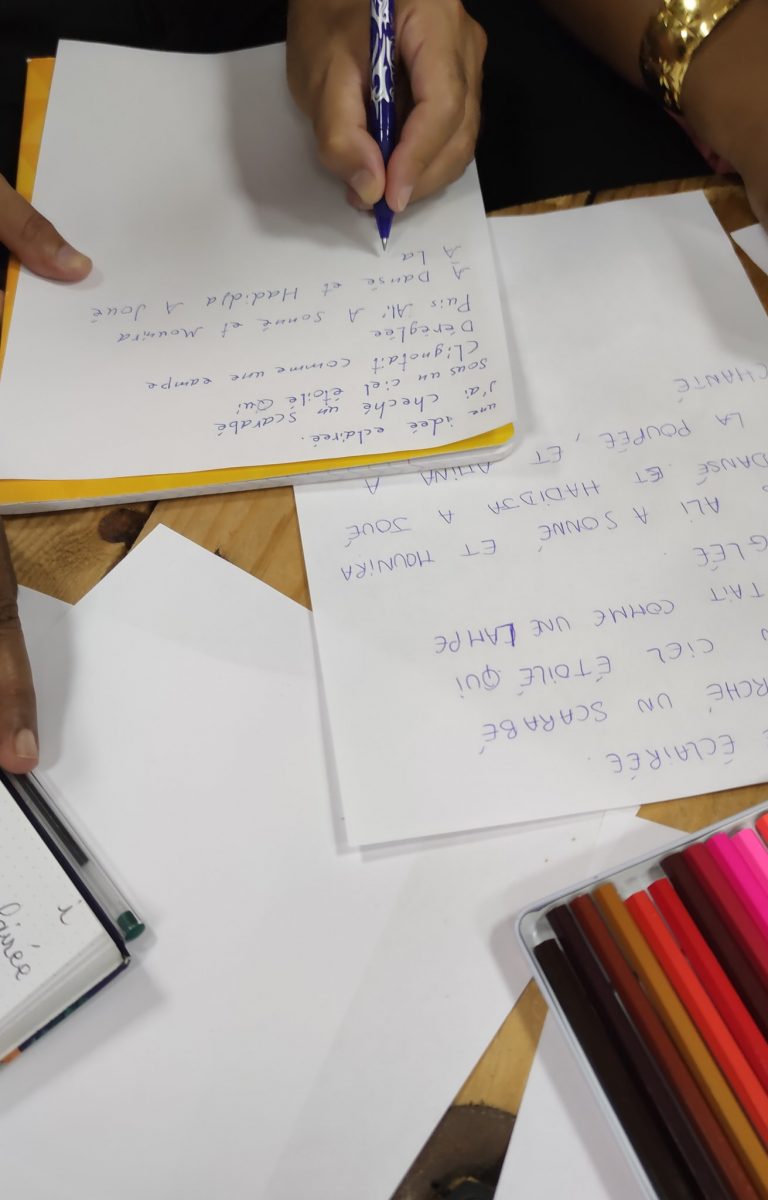 une ideé eclaireé.
j'ai cheché un scarabé
sous un ciel étoilé Qui
Clignotait comme une lampe
Déréglée
Puis Ali A Sonné et Mounira
A Dansé et Hadidja A Joué
A La
ÉCLAIRÉE.
RCHÉ UN SCARABÉ
CIEL ÉTOILÉ QUI
TAIT COMME UNE LAMPE
GLÉE
ALI A SONNÉ ET MOUNIRA
DANSÉ ET HADIDJA A JOUÉ
LA POUPÉE, ET AMINA A
CHANTÉ
i
lairée